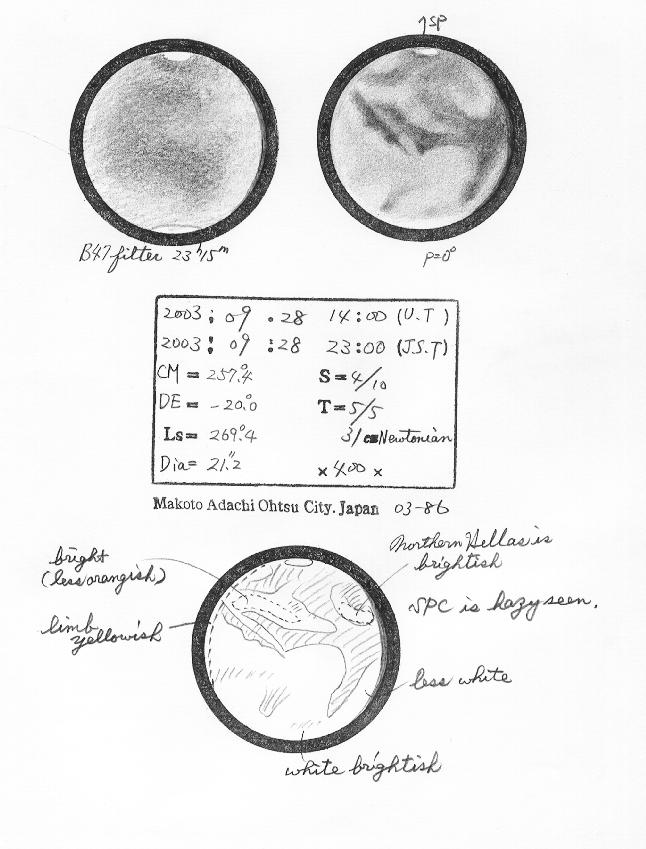 ↑SP
B47 filter 23ʰ15ᵐ
P=0°
2003 : 09 . 28 14:00 (U.T)
2003 : 09 : 28 23:00 (J.S.T)
CM = 257.°4 S = 4/10
DE = -20.°0 T = 5/5
Ls= 269.°4 31 cm Newtonian
Dia= 21."2 × 400 ×
Makoto Adachi Ohtsu City. Japan 03-86
bright
(less orangish)
Northern Hellas is
brightish
SPC is hazy seen.
limb
yellowish
less white
white brightish